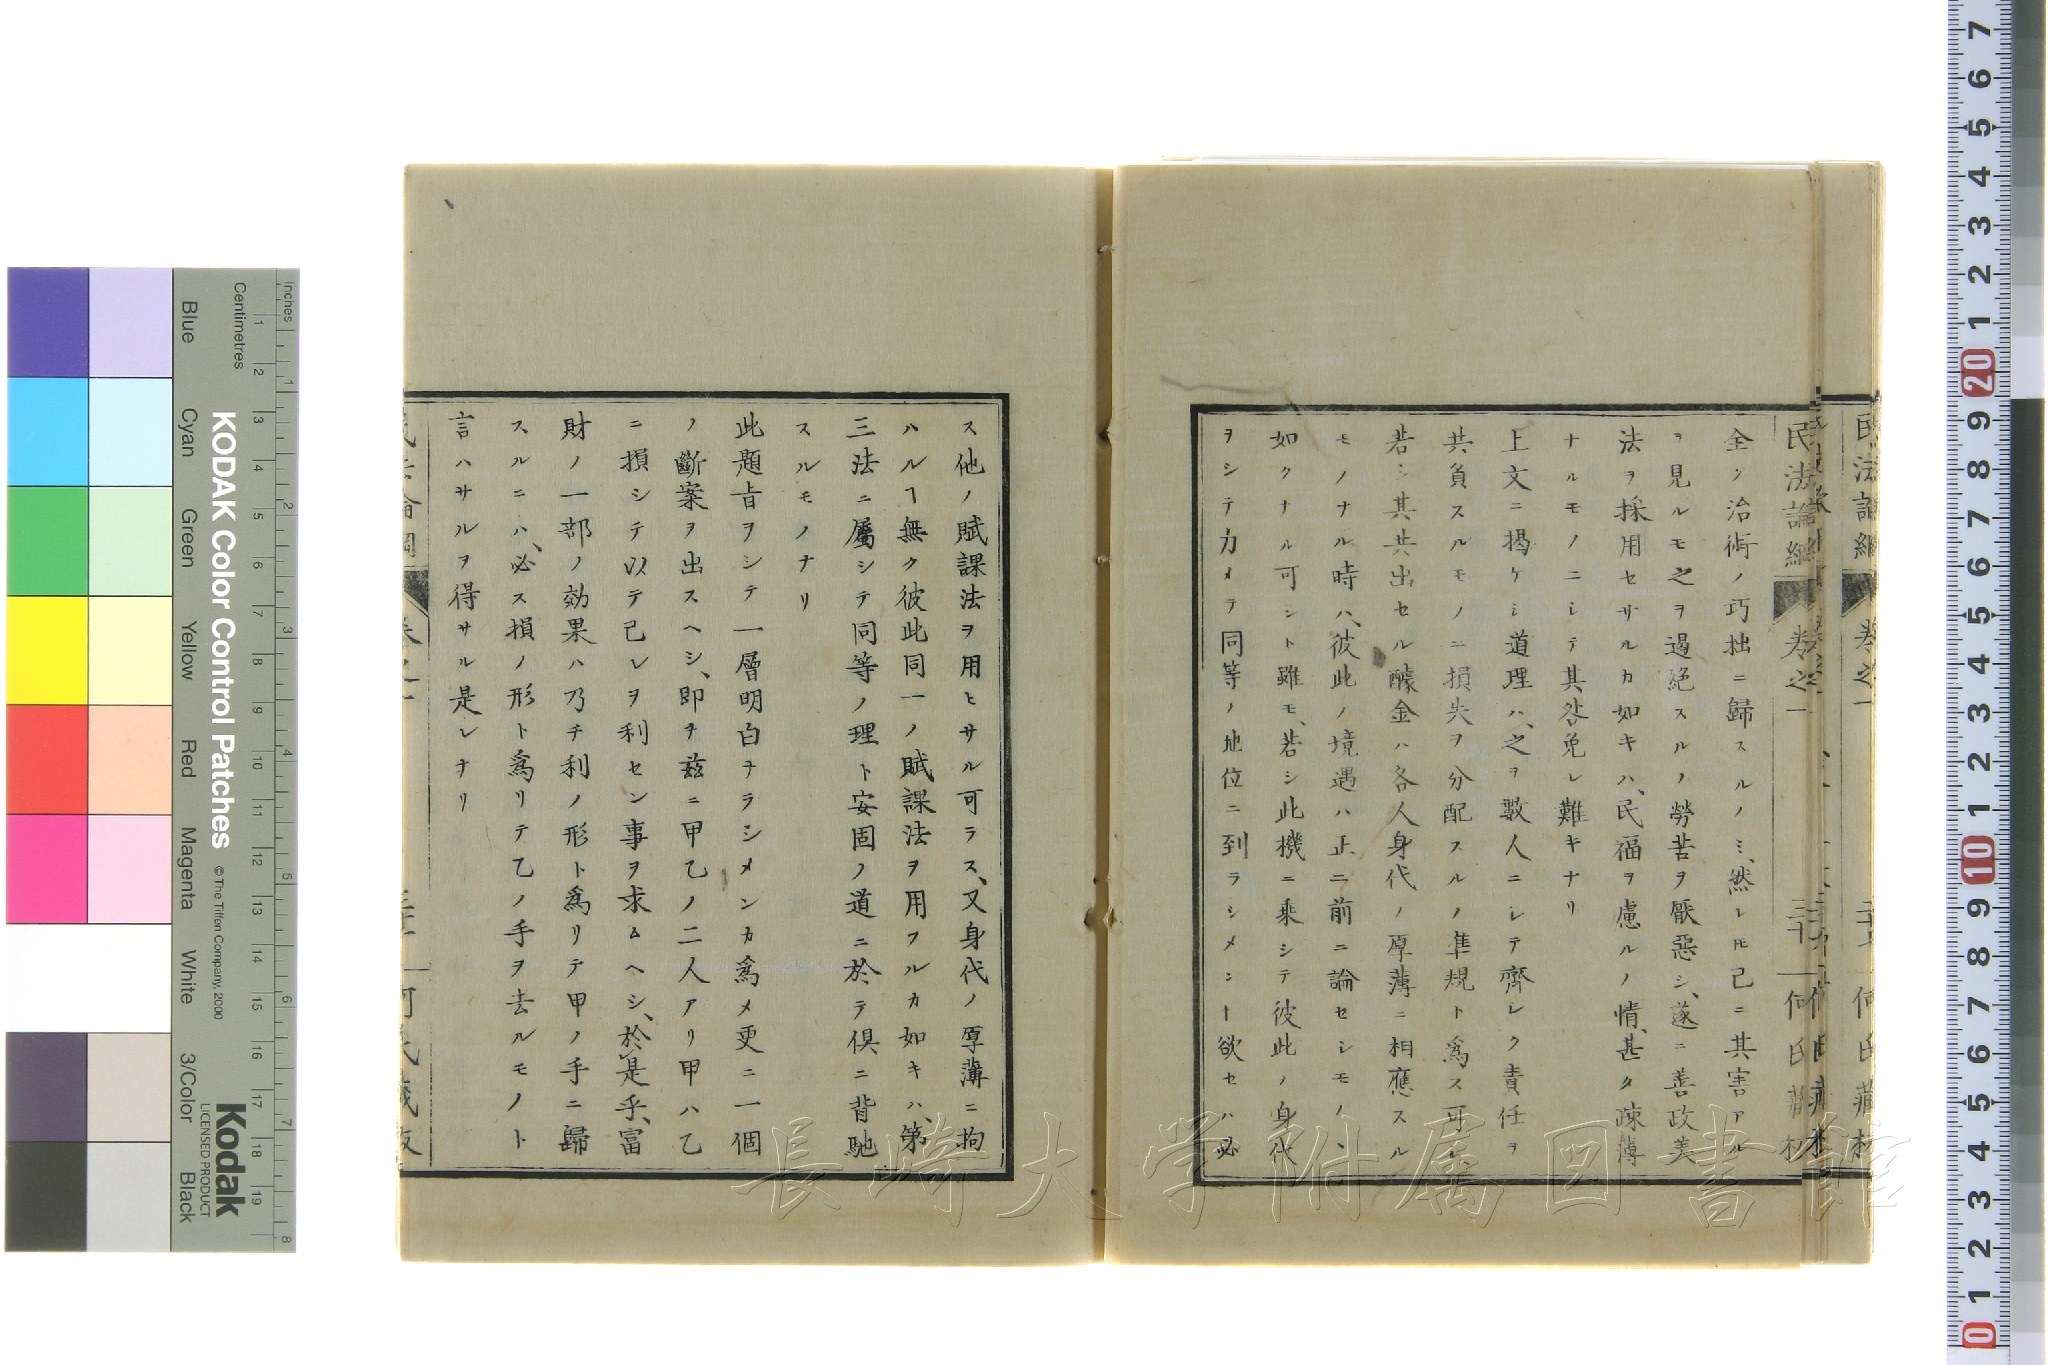 民法論綱
卷之一
三十
何氏藏板
全ク治術ノ巧拙ニ歸スルノミ、然レㇳモ已ニ其害アル
ヲ見ルモ之ヲ遏絕スルノ勞苦ヲ厭惡シ、遂ニ善政美
法ヲ採用セサルカ如キハ、民福ヲ慮ルノ情、甚タ疎薄
ナルモノニシテ其咎免レ難キナリ
上文ニ揭ケシ道理ハ、之ヲ數人ニシテ齊シク責任ヲ
共負スルモノニ損失ヲ分配スルノ準規ト爲ス可シ、
若シ其共出セル醵金ハ各人身代ノ厚薄ニ相應スル
モノナル時ハ、彼此ノ境遇ハ正ニ前ニ論セシモノヽ
如クナル可シト雖モ、若シ此機ニ乘シテ彼此ノ身代
ヲシテ力メテ同等ノ地位ニ到ラシメンㇳ欲セハ必
ス他ノ賦課法ヲ用ヒサル可ラス、又身代ノ厚薄ニ拘
ハルㇰ無ク彼此同一ノ賦課法ヲ用フルカ如キハ、第
三法ニ屬シテ同等ノ理ト安固ノ道ニ於テ俱ニ背馳
スルモノナリ
此題旨ヲシテ一層明白ナラシメンカ爲メ更ニ一個
ノ斷案ヲ出スヘシ、即チ茲ニ甲乙ノ二人アリ甲ハ乙
ニ損シテ以テ己レヲ利セン事ヲ求ムヘシ、於是乎、富
財ノ一部ノ効果ハ乃チ利ノ形ト爲リテ甲ノ手ニ歸
スルニハ、必ス損ノ形ト爲リテ乙ノ手ヲ去ルモノト
言ハサルヲ得サル是レナリ
長崎大学附属図書館
KODAK Color Control Patches
© The Tiffen Company, 2000
Kodak
LICENSED PRODUCT
Inches
Centimetres
Blue
Cyan
Green
Yellow
Red
Magenta
White
3/Color
Black